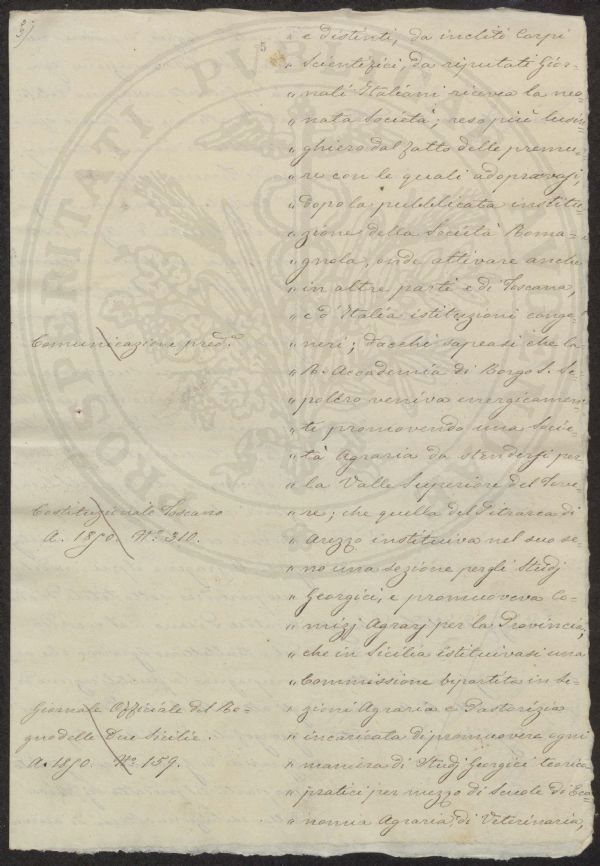 5
" e distinti, da incliti Corpi
" Scientifici, da riputati Gior-
" nali Italiani ricevea la neo-
" nata Società; reso più lusin-
" ghiero dal fatto delle premu-
" re con le quali adopravasi,
" dopo la pubblicata institu-
" zione della Società Roma-
" gnola, onde attivare anche
" in altre parti e di Toscana,
" e d'Italia istituzioni conge-
Comunicazione pred.a
" neri; dacchè sapeasi che la
" R. Accademia di Borgo S. Se-
" polcro veniva energicamen-
" te promovendo una Socie-
" tà Agraria da stendersi per
" la Valle Superiore del Teve-
Costituzionale Toscano
" re; che quella del Petrarca di
A. 1850. N.o 310.
" Arezzo instituiva nel suo se-
" no una sezione per gli Studj
" Georgici, e promuoveva Co-
" mizj Agrarj per la Provincia;
" che in Sicilia istituivasi una
" Commissione bipartita in Se-
Giornale Officiale del Re-
" zioni Agraria e Pastorizia
gno delle Due Sicilie.
" incaricata di promuovere ogni
A. 1850. N.o 159.
" maniera di Studj Georgici teorico
" pratici per mezzo di Scuole di Eco-
" nomia Agraria, di Veterinaria,
PROSPERITATI PUBLICAE AUGENDAE